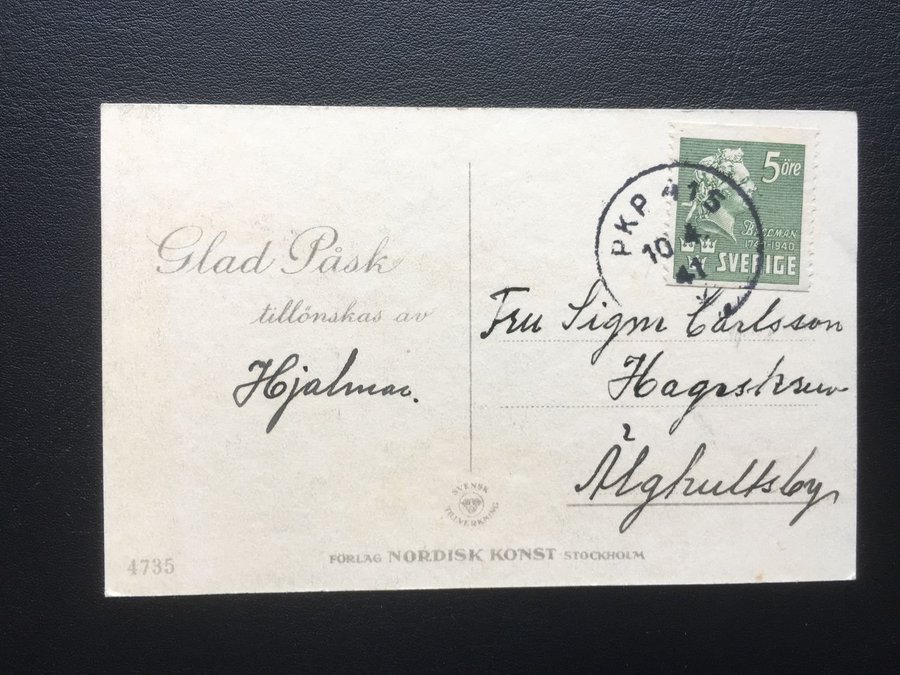 Glad Påsk
tillönskas av
Hjalmar.
5 öre
BELLMAN
1740-1940
SVERIGE
PKP 415
10 4.
41
Fru Signe Carlsson
Älghultsby
SVENSK
TILLVERKNING
FÖRLAG NORDISK KONST STOCKHOLM
4735